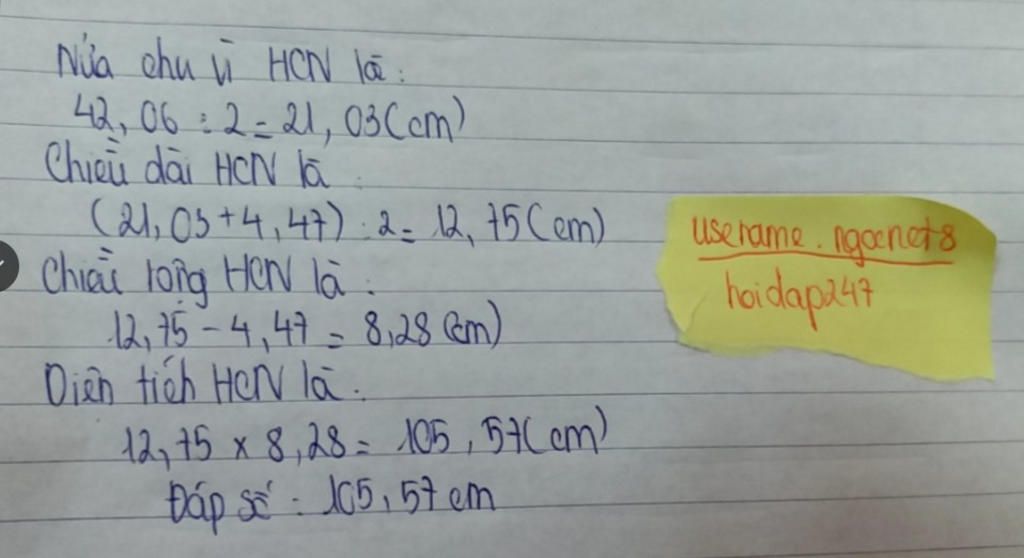 Nửa chu vi HCN là:
42,06 : 2 = 21,03 (cm)
Chiều dài HCN là:
(21,03 + 4,47) : 2 = 12,75 (cm)
Chiều rộng HCN là:
12,75 - 4,47 = 8,28 (cm)
Diện tích HCN là:
12,75 x 8,28 = 105,57 (cm)
Đáp số: 105,57 cm
username. ngocnet8
hoidap247